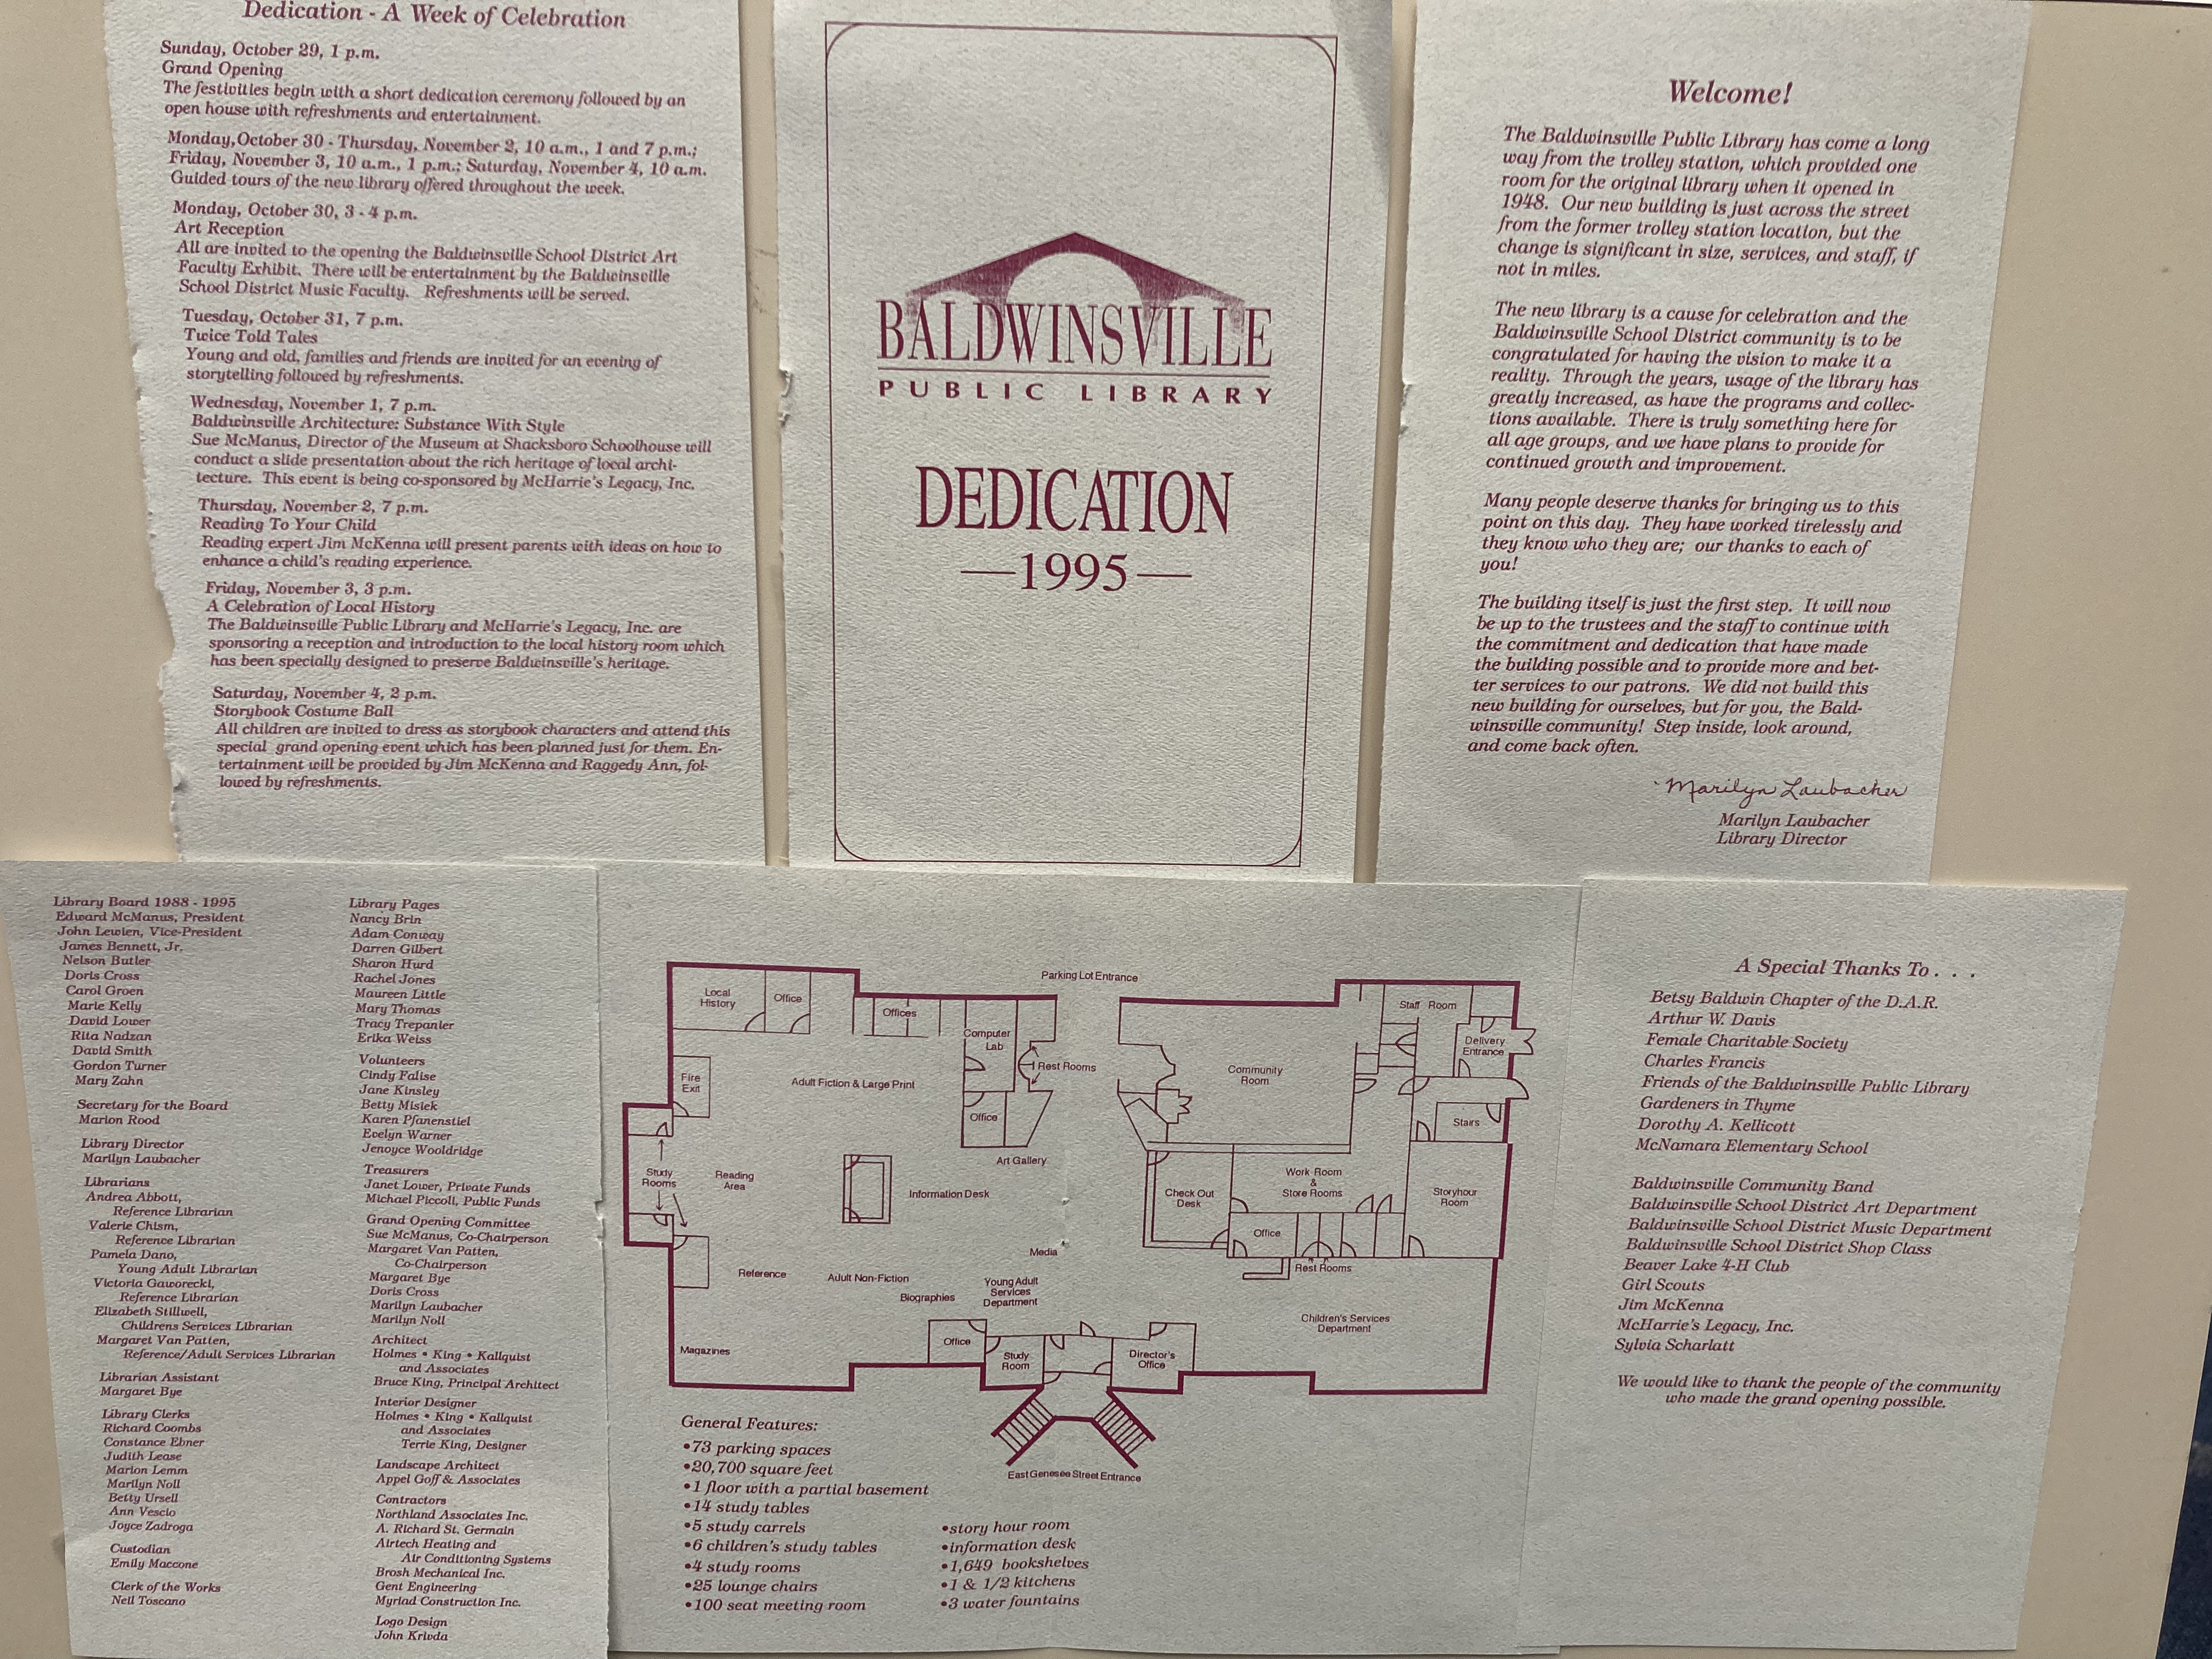 Dedication - A Week of Celebration
Sunday, October 29, 1 p.m.
Grand Opening
The festivities begin with a short dedication ceremony followed by an
open house with refreshments and entertainment.
Monday,October 30 - Thursday, November 2, 10 a.m., 1 and 7 p.m.;
Friday, November 3, 10 a.m., 1 p.m.; Saturday, November 4, 10 a.m.
Guided tours of the new library offered throughout the week.
Monday, October 30, 3 - 4 p.m.
Art Reception
All are invited to the opening the Baldwinsville School District Art
Faculty Exhibit. There will be entertainment by the Baldwinsville
School District Music Faculty. Refreshments will be served.
Tuesday, October 31, 7 p.m.
Twice Told Tales
Young and old, families and friends are invited for an evening of
storytelling followed by refreshments.
Wednesday, November 1, 7 p.m.
Baldwinsville Architecture: Substance With Style
Sue McManus, Director of the Museum at Shacksboro Schoolhouse will
conduct a slide presentation about the rich heritage of local archi-
tecture. This event is being co-sponsored by McHarrie's Legacy, Inc.
Thursday, November 2, 7 p.m.
Reading To Your Child
Reading expert Jim McKenna will present parents with ideas on how to
enhance a child's reading experience.
Friday, November 3, 3 p.m.
A Celebration of Local History
The Baldwinsville Public Library and McHarrie's Legacy, Inc. are
sponsoring a reception and introduction to the local history room which
has been specially designed to preserve Baldwinsville's heritage.
Saturday, November 4, 2 p.m.
Storybook Costume Ball
All children are invited to dress as storybook characters and attend this
special grand opening event which has been planned just for them. En-
tertainment will be provided by Jim McKenna and Raggedy Ann, fol-
lowed by refreshments.
BALDWINSVILLE
PUBLIC LIBRARY
DEDICATION
—1995—
Welcome!
The Baldwinsville Public Library has come a long
way from the trolley station, which provided one
room for the original library when it opened in
1948. Our new building is just across the street
from the former trolley station location, but the
change is significant in size, services, and staff, if
not in miles.
The new library is a cause for celebration and the
Baldwinsville School District community is to be
congratulated for having the vision to make it a
reality. Through the years, usage of the library has
greatly increased, as have the programs and collec-
tions available. There is truly something here for
all age groups, and we have plans to provide for
continued growth and improvement.
Many people deserve thanks for bringing us to this
point on this day. They have worked tirelessly and
they know who they are; our thanks to each of
you!
The building itself is just the first step. It will now
be up to the trustees and the staff to continue with
the commitment and dedication that have made
the building possible and to provide more and bet-
ter services to our patrons. We did not build this
new building for ourselves, but for you, the Bald-
winsville community! Step inside, look around,
and come back often.
Marilyn Laubacher
Marilyn Laubacher
Library Director
Library Board 1988 - 1995
Edward McManus, President
John Lewien, Vice-President
James Bennett, Jr.
Nelson Butler
Doris Cross
Carol Groen
Marie Kelly
David Lower
Rita Nadzan
David Smith
Gordon Turner
Mary Zahn
Secretary for the Board
Marion Rood
Library Director
Marilyn Laubacher
Librarians
Andrea Abbott,
Reference Librarian
Valerie Chism,
Reference Librarian
Pamela Dano,
Young Adult Librarian
Victoria Gaworecki,
Reference Librarian
Elizabeth Stillwell,
Childrens Services Librarian
Margaret Van Patten,
Reference/Adult Services Librarian
Librarian Assistant
Margaret Bye
Library Clerks
Richard Coombs
Constance Ebner
Judith Lease
Marion Lemm
Marilyn Noll
Betty Ursell
Ann Vescio
Joyce Zadroga
Custodian
Emily Maccone
Clerk of the Works
Neil Toscano
Library Pages
Nancy Brin
Adam Conway
Darren Gilbert
Sharon Hurd
Rachel Jones
Maureen Little
Mary Thomas
Tracy Trepanier
Erika Weiss
Volunteers
Cindy Falise
Jane Kinsley
Betty Misiek
Karen Pfanenstiel
Evelyn Warner
Jenoyce Wooldridge
Treasurers
Janet Lower, Private Funds
Michael Piccoli, Public Funds
Grand Opening Committee
Sue McManus, Co-Chairperson
Margaret Van Patten,
Co-Chairperson
Margaret Bye
Doris Cross
Marilyn Laubacher
Marilyn Noll
Architect
Holmes • King • Kallquist
and Associates
Bruce King, Principal Architect
Interior Designer
Holmes • King • Kallquist
and Associates
Terrie King, Designer
Landscape Architect
Appel Goff & Associates
Contractors
Northland Associates Inc.
A. Richard St. Germain
Airtech Heating and
Air Conditioning Systems
Brosh Mechanical Inc.
Gent Engineering
Myriad Construction Inc.
Logo Design
John Krivda
Parking Lot Entrance
Local
History
Office
Offices
Computer
Lab
Rest Rooms
Community
Room
Staff Room
Delivery
Entrance
Fire
Exit
Adult Fiction & Large Print
Office
Stairs
Art Gallery
Study
Rooms
Reading
Area
Information Desk
Check Out
Desk
Work Room
&
Store Rooms
Storyhour
Room
Office
Media
Rest Rooms
Reference
Adult Non-Fiction
Biographies
Young Adult
Services
Department
Children's Services
Department
Magazines
Office
Study
Room
Director's
Office
East Genesee Street Entrance
General Features:
•73 parking spaces
•20,700 square feet
•1 floor with a partial basement
•14 study tables
•5 study carrels
•6 children's study tables
•4 study rooms
•25 lounge chairs
•100 seat meeting room
•story hour room
•information desk
•1,649 bookshelves
•1 & 1/2 kitchens
•3 water fountains
A Special Thanks To . . .
Betsy Baldwin Chapter of the D.A.R.
Arthur W. Davis
Female Charitable Society
Charles Francis
Friends of the Baldwinsville Public Library
Gardeners in Thyme
Dorothy A. Kellicott
McNamara Elementary School
Baldwinsville Community Band
Baldwinsville School District Art Department
Baldwinsville School District Music Department
Baldwinsville School District Shop Class
Beaver Lake 4-H Club
Girl Scouts
Jim McKenna
McHarrie's Legacy, Inc.
Sylvia Scharlatt
We would like to thank the people of the community
who made the grand opening possible.